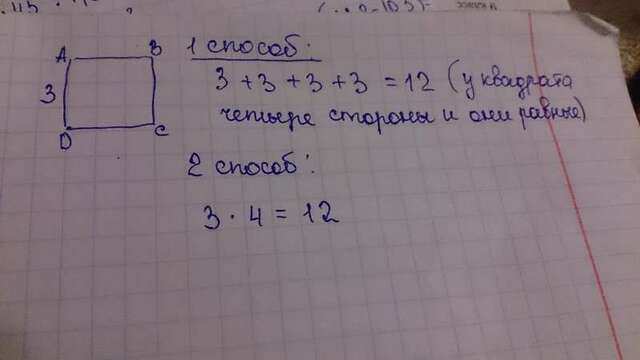 A B
1 способ:
3
3 + 3 + 3 + 3 = 12 (у квадрата
четыере стороны и они равные)
D C
2 способ:
3 · 4 = 12